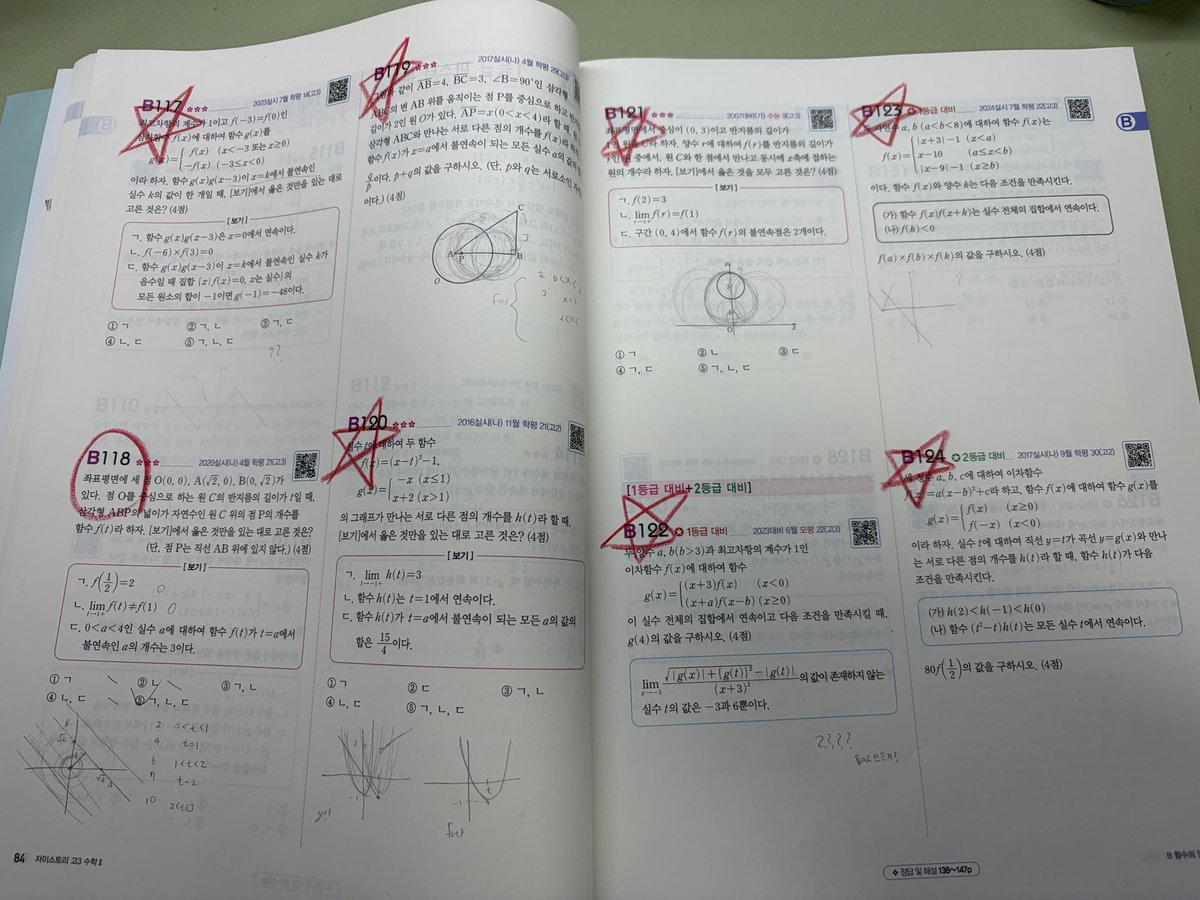 B117 ✿✿✿ 2023실시 7월 학평 14(고3)
최고차항의 계수가 1이고 f(-3)=f(0)인
삼차함수 f(x)에 대하여 함수 g(x)를
g(x)={ f(x) (x<-3 또는 x≥0)
-f(x) (-3≤x<0)
이라 하자. 함수 g(x)g(x-3)이 x=k에서 불연속인
실수 k의 값이 한 개일 때, [보기]에서 옳은 것만을 있는 대로
고른 것은? (4점)
[보기]
ㄱ. 함수 g(x)g(x-3)은 x=0에서 연속이다.
ㄴ. f(-6)×f(3)=0
ㄷ. 함수 g(x)g(x-3)이 x=k에서 불연속인 실수 k가
음수일 때 집합 {x|f(x)=0, x는 실수}의
모든 원소의 합이 -1이면 g(-1)=-48이다.
① ㄱ ② ㄱ, ㄴ ③ ㄱ, ㄷ
④ ㄴ, ㄷ ⑤ ㄱ, ㄴ, ㄷ
??
B118 ✿✿✿ 2020실시(나) 4월 학평 21(고3)
좌표평면에 세 점 O(0, 0), A(√2, 0), B(0, √2)가
있다. 점 O를 중심으로 하는 원 C의 반지름의 길이가 t일 때,
삼각형 ABP의 넓이가 자연수인 원 C 위의 점 P의 개수를
함수 f(t)라 하자. [보기]에서 옳은 것만을 있는 대로 고른 것은?
(단, 점 P는 직선 AB 위에 있지 않다.) (4점)
[보기]
ㄱ. f(1/2)=2
ㄴ. lim t→1+ f(t)≠f(1)
ㄷ. 0<a<4인 실수 a에 대하여 함수 f(t)가 t=a에서
불연속인 a의 개수는 3이다.
① ㄱ ② ㄴ ③ ㄱ, ㄴ
④ ㄴ, ㄷ ⑤ ㄱ, ㄴ, ㄷ
2 0<t<1
4 t=1
6 1<t<2
7 t=2
10
84 자이스토리 고3 수학Ⅱ
B119 ✿✿✿ 2017실시(나) 4월 학평 29(고3)
그림과 같이 AB=4, BC=3, ∠B=90°인 삼각형
ABC의 변 AB 위를 움직이는 점 P를 중심으로 하고 반지름의
길이가 2인 원 O가 있다. AP=x(0<x<4)라 할 때, 원
삼각형 ABC와 만나는 서로 다른 점의 개수를 f(x)라 하
함수 f(x)가 x=a에서 불연속이 되는 모든 실수 a의 값의
q/p이다. p+q의 값을 구하시오. (단, p와 q는 서로소인 자연
이다.) (4점)
C
A
P
B
O
B120 ✿✿✿ 2016실시(나) 11월 학평 21(고2)
실수 t에 대하여 두 함수
f(x)=(x-t)²-1,
g(x)={ -x (x≤1)
x+2 (x>1)
의 그래프가 만나는 서로 다른 점의 개수를 h(t)라 할 때,
[보기]에서 옳은 것만을 있는 대로 고른 것은? (4점)
[보기]
ㄱ. lim t→-1+ h(t)=3
ㄴ. 함수 h(t)는 t=1에서 연속이다.
ㄷ. 함수 h(t)가 t=a에서 불연속이 되는 모든 a의 값의
합은 15/4이다.
① ㄱ ② ㄷ ③ ㄱ, ㄴ
④ ㄴ, ㄷ ⑤ ㄱ, ㄴ, ㄷ
g(x)
f(x)
B121 ✿✿✿ 2007대비(가) 수능 9(고3)
좌표평면에서 중심이 (0, 3)이고 반지름의 길이가
1인 원을 C라 하자. 양수 r에 대하여 f(r)를 반지름의 길이가
r인 원 중에서, 원 C와 한 점에서 만나고 동시에 x축에 접하는
원의 개수라 하자. [보기]에서 옳은 것을 모두 고른 것은? (4점)
[보기]
ㄱ. f(2)=3
ㄴ. lim r→1+ f(r)=f(1)
ㄷ. 구간 (0, 4)에서 함수 f(r)의 불연속점은 2개이다.
① ㄱ ② ㄴ ③ ㄷ
④ ㄱ, ㄷ ⑤ ㄱ, ㄴ, ㄷ
[1등급 대비+2등급 대비]
B122 ✪ 1등급 대비 2023대비 6월 모평 22(고3)
두 양수 a, b(b>3)과 최고차항의 계수가 1인
이차함수 f(x)에 대하여 함수
g(x)={(x+3)f(x) (x<0)
(x+a)f(x-b) (x≥0)
이 실수 전체의 집합에서 연속이고 다음 조건을 만족시킬 때,
g(4)의 값을 구하시오. (4점)
lim x→-3 (√(|g(x)|+{g(t)}²)-|g(t)|)/(x+3)²의 값이 존재하지 않는
실수 t의 값은 -3과 6뿐이다.
2???
B123 ✪ 1등급 대비 2024실시 7월 학평 22(고3)
두 자연수 a, b (a<b<8)에 대하여 함수 f(x)는
f(x)={|x+3|-1 (x<a)
x-10 (a≤x<b)
|x-9|-1 (x≥b)
이다. 함수 f(x)와 양수 k는 다음 조건을 만족시킨다.
(가) 함수 f(x)f(x+k)는 실수 전체의 집합에서 연속이다.
(나) f(k)<0
f(a)×f(b)×f(k)의 값을 구하시오. (4점)
?
B124 ✪ 2등급 대비 2017실시(나) 9월 학평 30(고2)
a, b, c에 대하여 이차함수
=a(x-b)²+c라 하고, 함수 f(x)에 대하여 함수 g(x)를
g(x)={f(x) (x≥0)
f(-x) (x<0)
이라 하자. 실수 t에 대하여 직선 y=t가 곡선 y=g(x)와 만나
는 서로 다른 점의 개수를 h(t)라 할 때, 함수 h(t)가 다음
조건을 만족시킨다.
(가) h(2)<h(-1)<h(0)
(나) 함수 (t²-t)h(t)는 모든 실수 t에서 연속이다.
80f(1/2)의 값을 구하시오. (4점)
B
❖ 정답 및 해설 138~147p
B 함수의